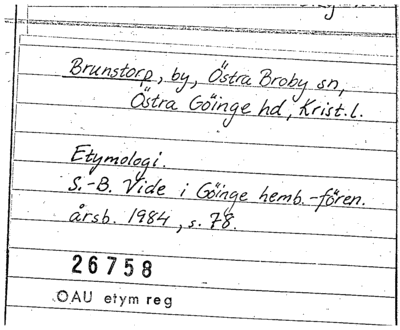 Brunstorp, by, Östra Broby sn,
Östra Göinge hd, Krist.l.
Etymologi.
S.-B. Vide i Göinge hemb.-fören.
årsb. 1984, s. 78.
26758
OAU etym reg